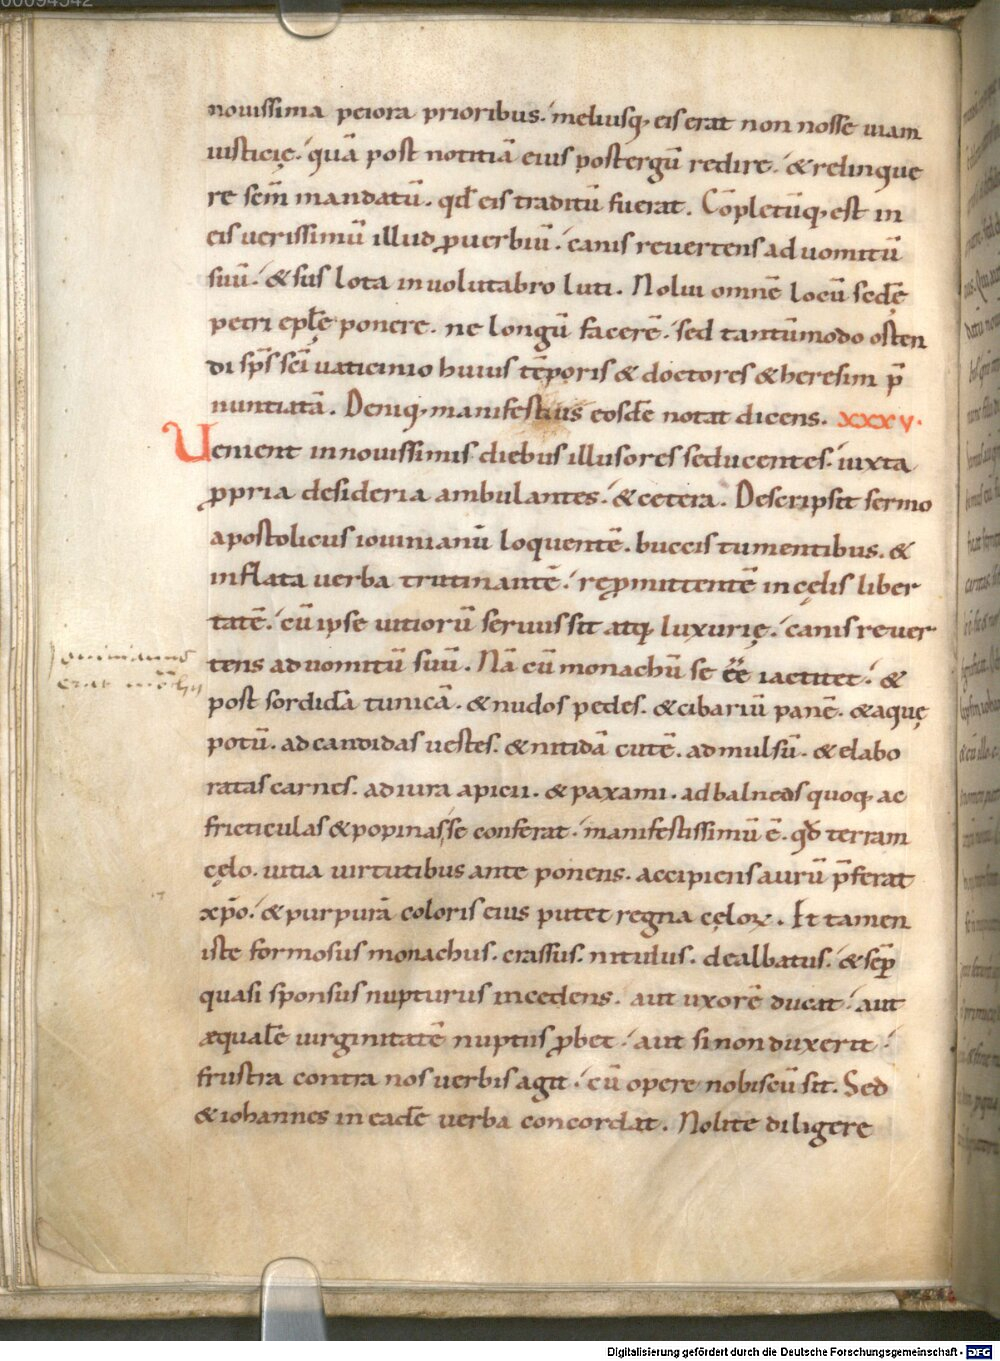 nouissima peiora prioribus. meliusq; eis erat non nosse uiam
iusticię. quā post notitiā eius postergū redire. & relinque
re scm̄ mandatū. qd̄ eis traditū fuerat. Cōpletūq; est in
eis uerissimū illud ꝓuerbiū. canis reuertens ad uomitū
suū. & sus lota in uolutabro luti. Nolui omnē locū secd̄ę
petri epl̄ę ponere. ne longū facerē. sed tantūmodo osten
di sp̄s sc̄i uaticinio huius tēporis & doctores & heresim p̄
nuntiatā. Deniq; manifestius eosdē notat dicens. xxxv.
Uenient in nouissimis diebus illusores seducentes. iuxta
ꝓpria desideria ambulantes. & cetera. Descripsit sermo
apostolicus iouinianū loquentē. buccis tumentibus. &
inflata uerba trutinantē. reꝓmittentē in cęlis liber
tatē. cū ipse uitiorū seruus sit atq; luxurię. canis reuer
tens ad uomitū suū. Nā cū monachū se ēē iactitet. &
post sordidā tunicā. & nudos pedes. & cibariū panē. & aquę
potū. ad candidas uestes. & nitidā cutē. ad mulsū. & elabo
ratas carnes. ad iura apicii. & paxami. ad balneas quoq; ac
fricticulas & popinas se conferat. manifestissimū ē. qd̄ terram
cęlo. uitia uirtutibus ante ponens. accipiens aurū p̄ferat
xp̄o. & purpurā coloris eius putet regna cęloꝝ. Et tamen
iste formosus monachus. crassus. nitulus. dealbatus. & semꝑ
quasi sponsus nupturus incedens. aut uxorē ducat. aut
æqualē uirginitatē nuptiis ꝓbet. aut si non duxerit.
frustra contra nos uerbis agit. cū opere nobiscū sit. Sed
& iohannes in eadē uerba concordat. Nolite diligere